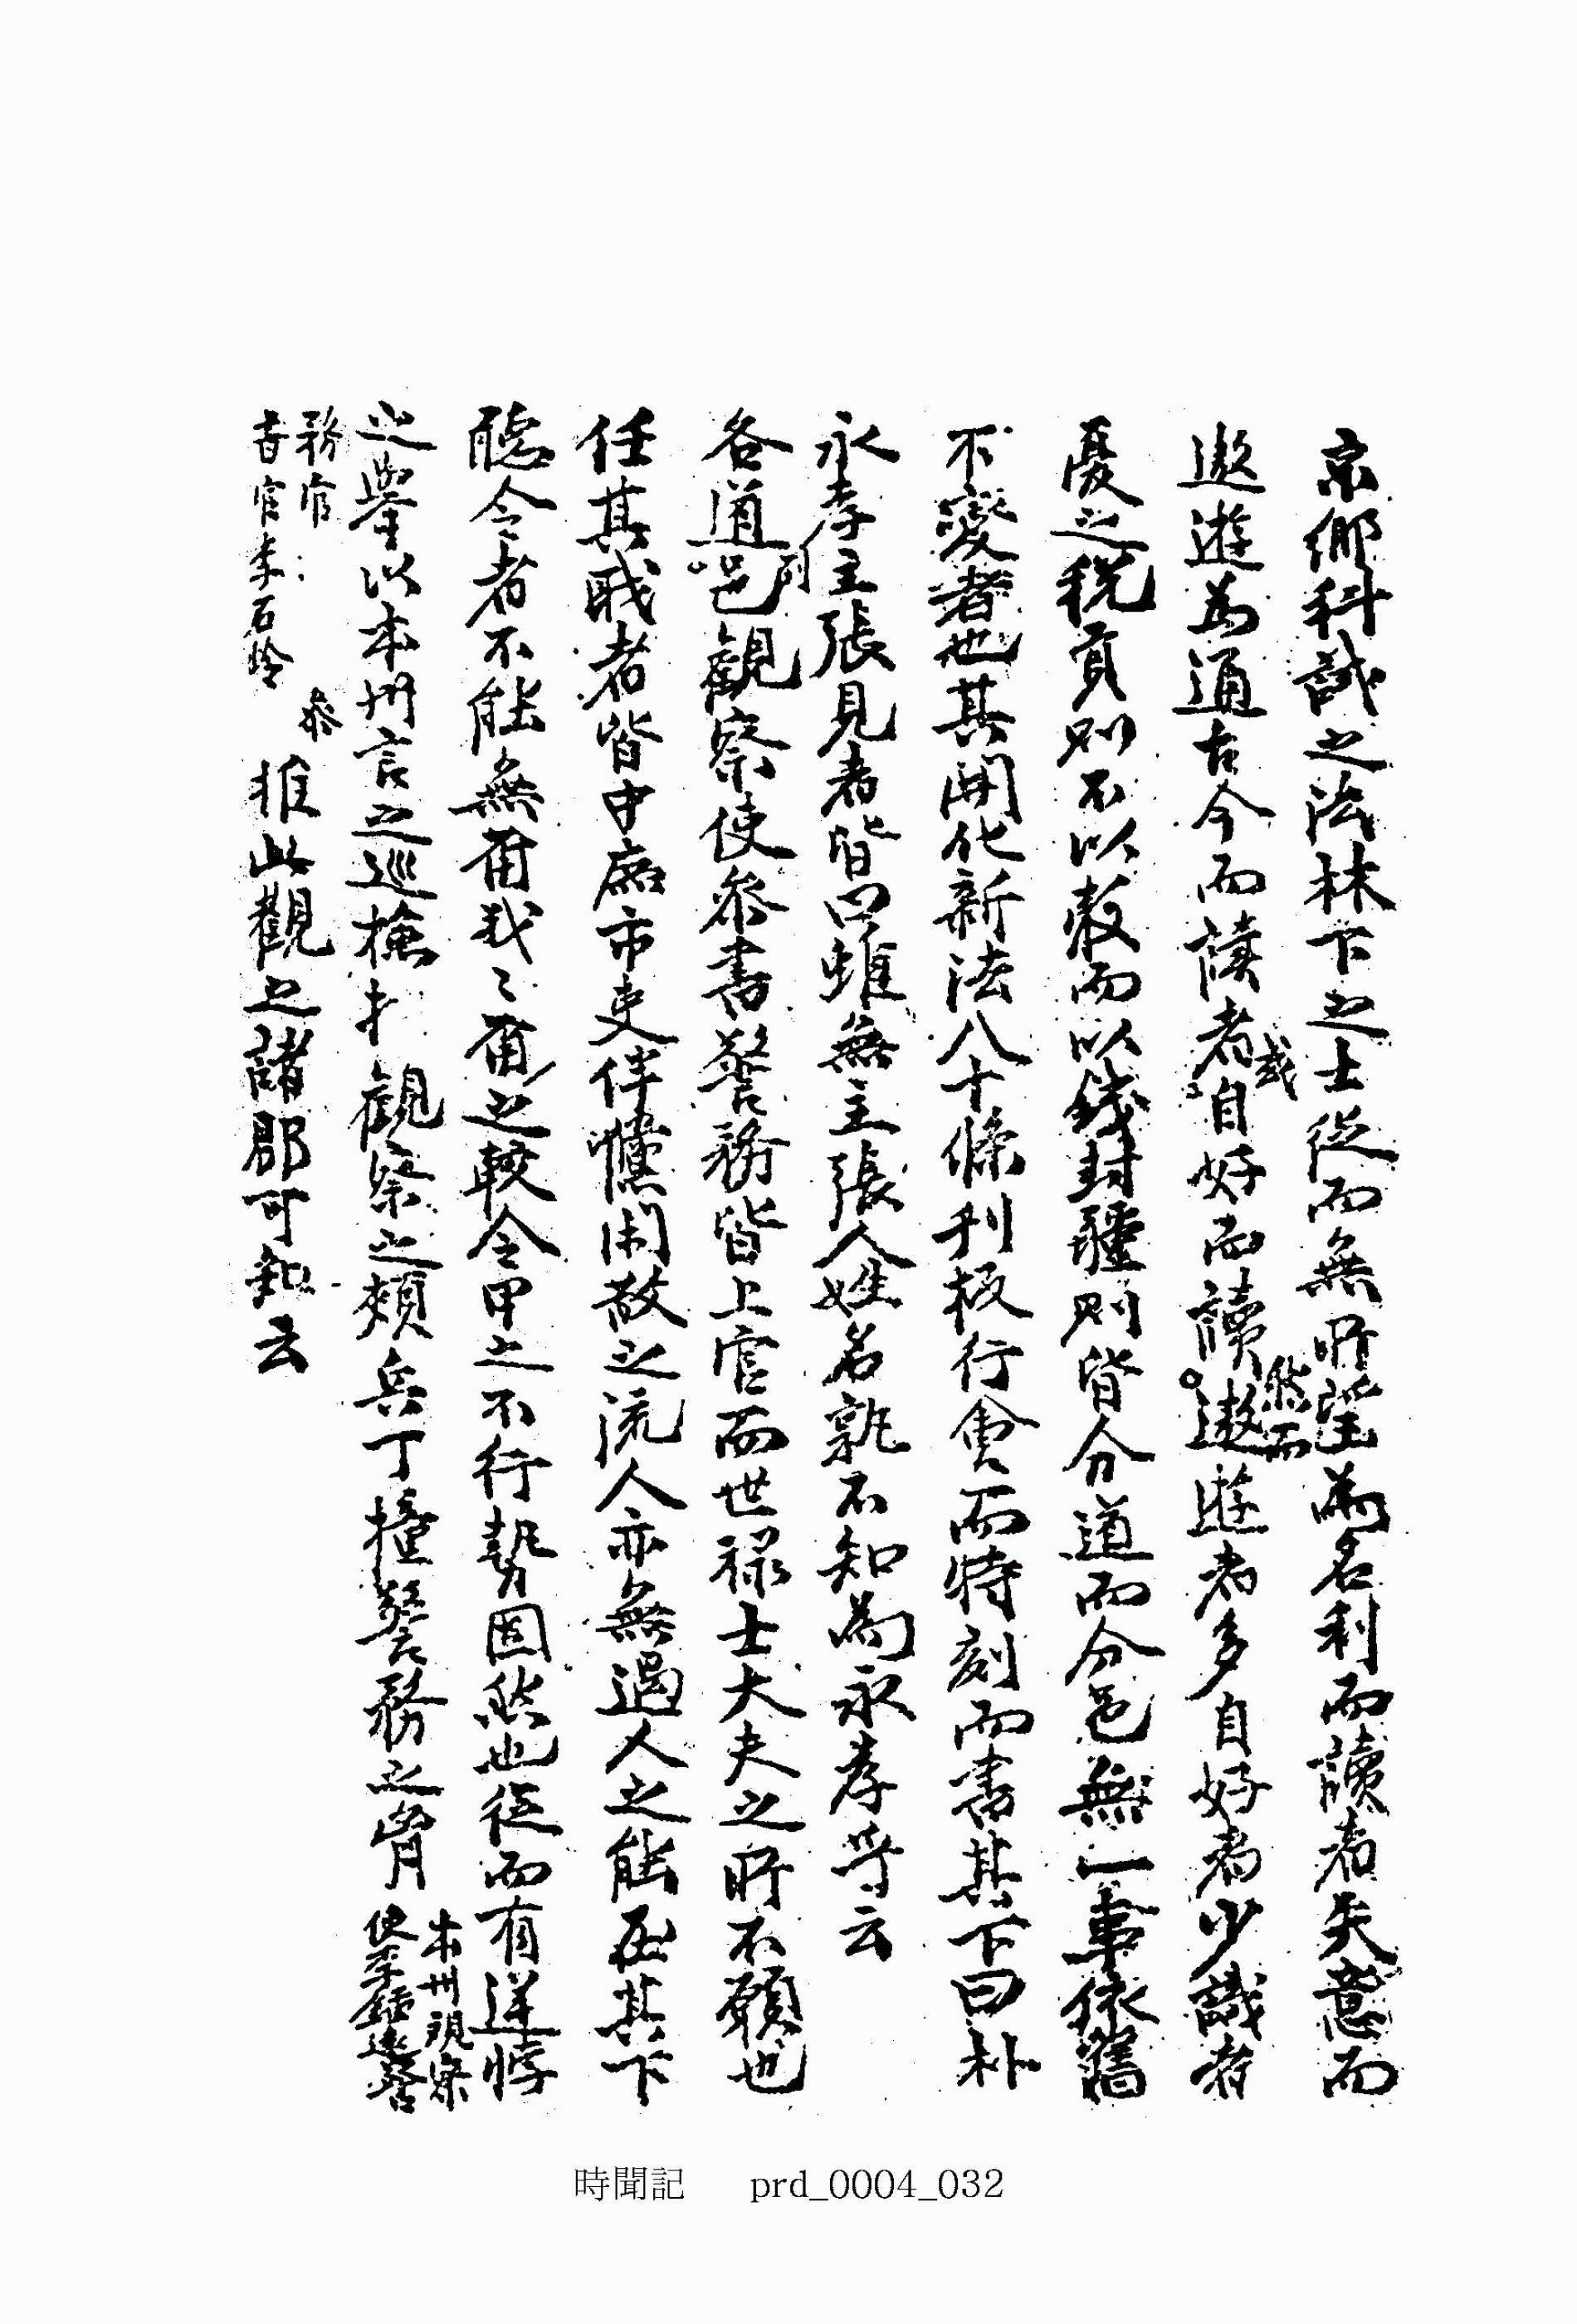 京鄕科試之法林下之士從而無所望為名利而讀者失意而
遨遊為通古今而讀者或自好而讀然而遨遊者多自好者少識者
憂之稅貢則不以穀而以錢封疆則皆分道而分邑無一事依舊
不變者也其開化新法八十條刊板行會而特刻而書其下曰朴
永孝主張見者皆曰雖無主張人姓名孰不知為永孝乎云
各道列邑觀察使參書警務皆上官而世祿士大夫之所不願也
任其職者皆中庶市吏伴儻閑散之流人亦無過人之能在其下
聽令者不能無爾我〻爾之較令甲之不行勢固然也從而有逆悖
之擧以本州言之巡檢批觀察之頰兵丁撞警務之胷
本州觀察
使李 警
務官
書官李
參
推此觀之諸郡可知云
時聞記 prd_0004_032